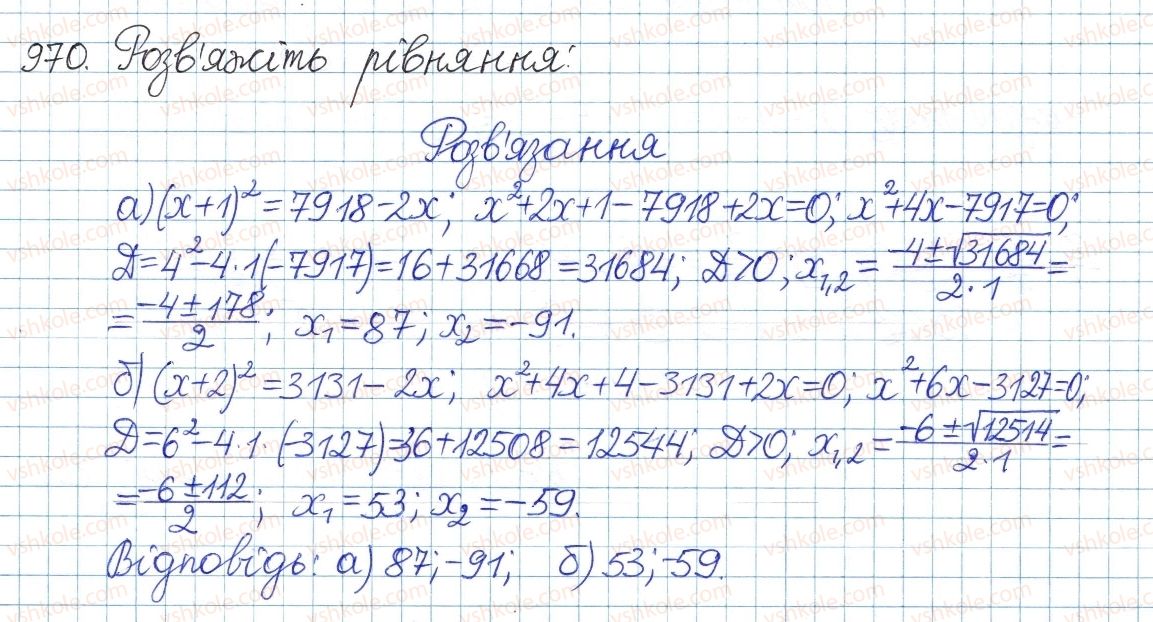 970. Розв'яжіть рівняння:
Розв'язання
а) (x+1)² = 7918-2x; x²+2x+1-7918+2x=0; x²+4x-7917=0;
Д=4²-4·1(-7917)=16+31668=31684; Д>0; x₁,₂ = (-4±√31684)/(2·1) =
= (-4±178)/2; x₁=87; x₂=-91.
б) (x+2)² = 3131-2x; x²+4x+4-3131+2x=0; x²+6x-3127=0;
Д=6²-4·1·(-3127)=36+12508=12544; Д>0; x₁,₂ = (-6±√12514)/(2·1) =
= (-6±112)/2; x₁=53; x₂=-59.
Відповідь: а) 87;-91; б) 53;-59.